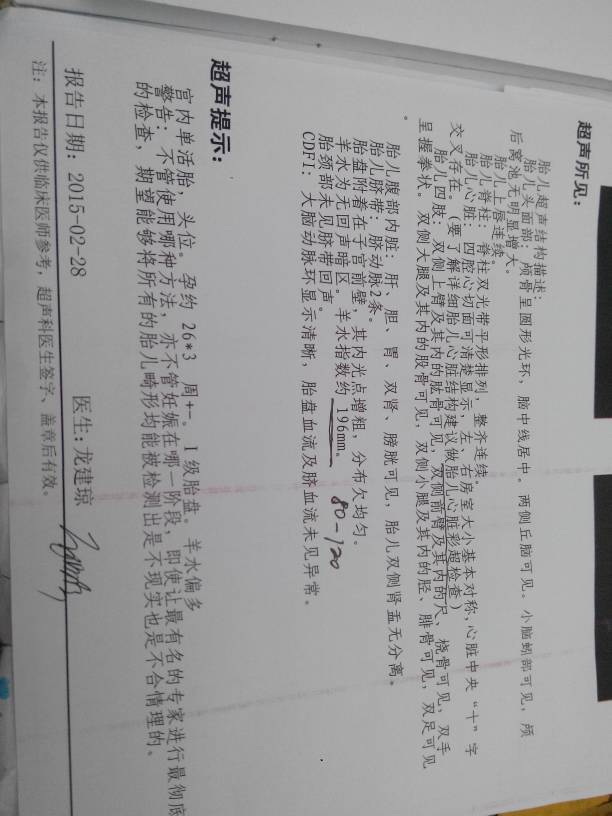 超声所见：
胎儿超声结构描述：
胎儿头面部：颅骨呈圆形光环，脑中线居中。两侧丘脑可见。小脑蚓部可见，颅
后窝池无明显增大。
胎儿上唇连续。
胎儿脊柱：脊柱双光带平形排列，整齐连续。
胎儿心脏：四腔心切面可清楚显示，左、右房室大小基本对称，心脏中央“十”字
交叉存在。（要了解详细胎儿心脏结构建议做胎儿心脏彩超检查）
胎儿四肢：双侧上臂及其内的肱骨可见，双侧前臂及其内的尺、桡骨可见，双手
呈握拳状。双侧大腿及其内的股骨可见，双侧小腿及其内的胫、腓骨可见，双足可见
。
胎儿腹部内脏：肝、胆、胃、双肾、膀胱可见，胎儿双侧肾盂无分离。
胎儿脐带：脐动脉2条。
胎盘附着在子宫前壁，其内光点增粗，分布欠均匀。
羊水为无回声暗区。羊水指数约 196mm。 80-120
胎颈部未见脐带回声。
CDFI：大脑动脉环显示清晰，胎盘血流及脐血流未见异常。
超声提示：
宫内单活胎，头位。孕约 26*3 周+-。I级胎盘。羊水偏多
警告：不管使用哪种方法，亦不管妊娠在哪一阶段，即使让最有名的专家进行最彻底
的检查，期望能够将所有的胎儿畸形均能被检测出是不现实也是不合情理的。
报告日期：2015-02-28 医生：龙建琼
注：本报告仅供临床医师参考，超声科医生签字、盖章后有效。